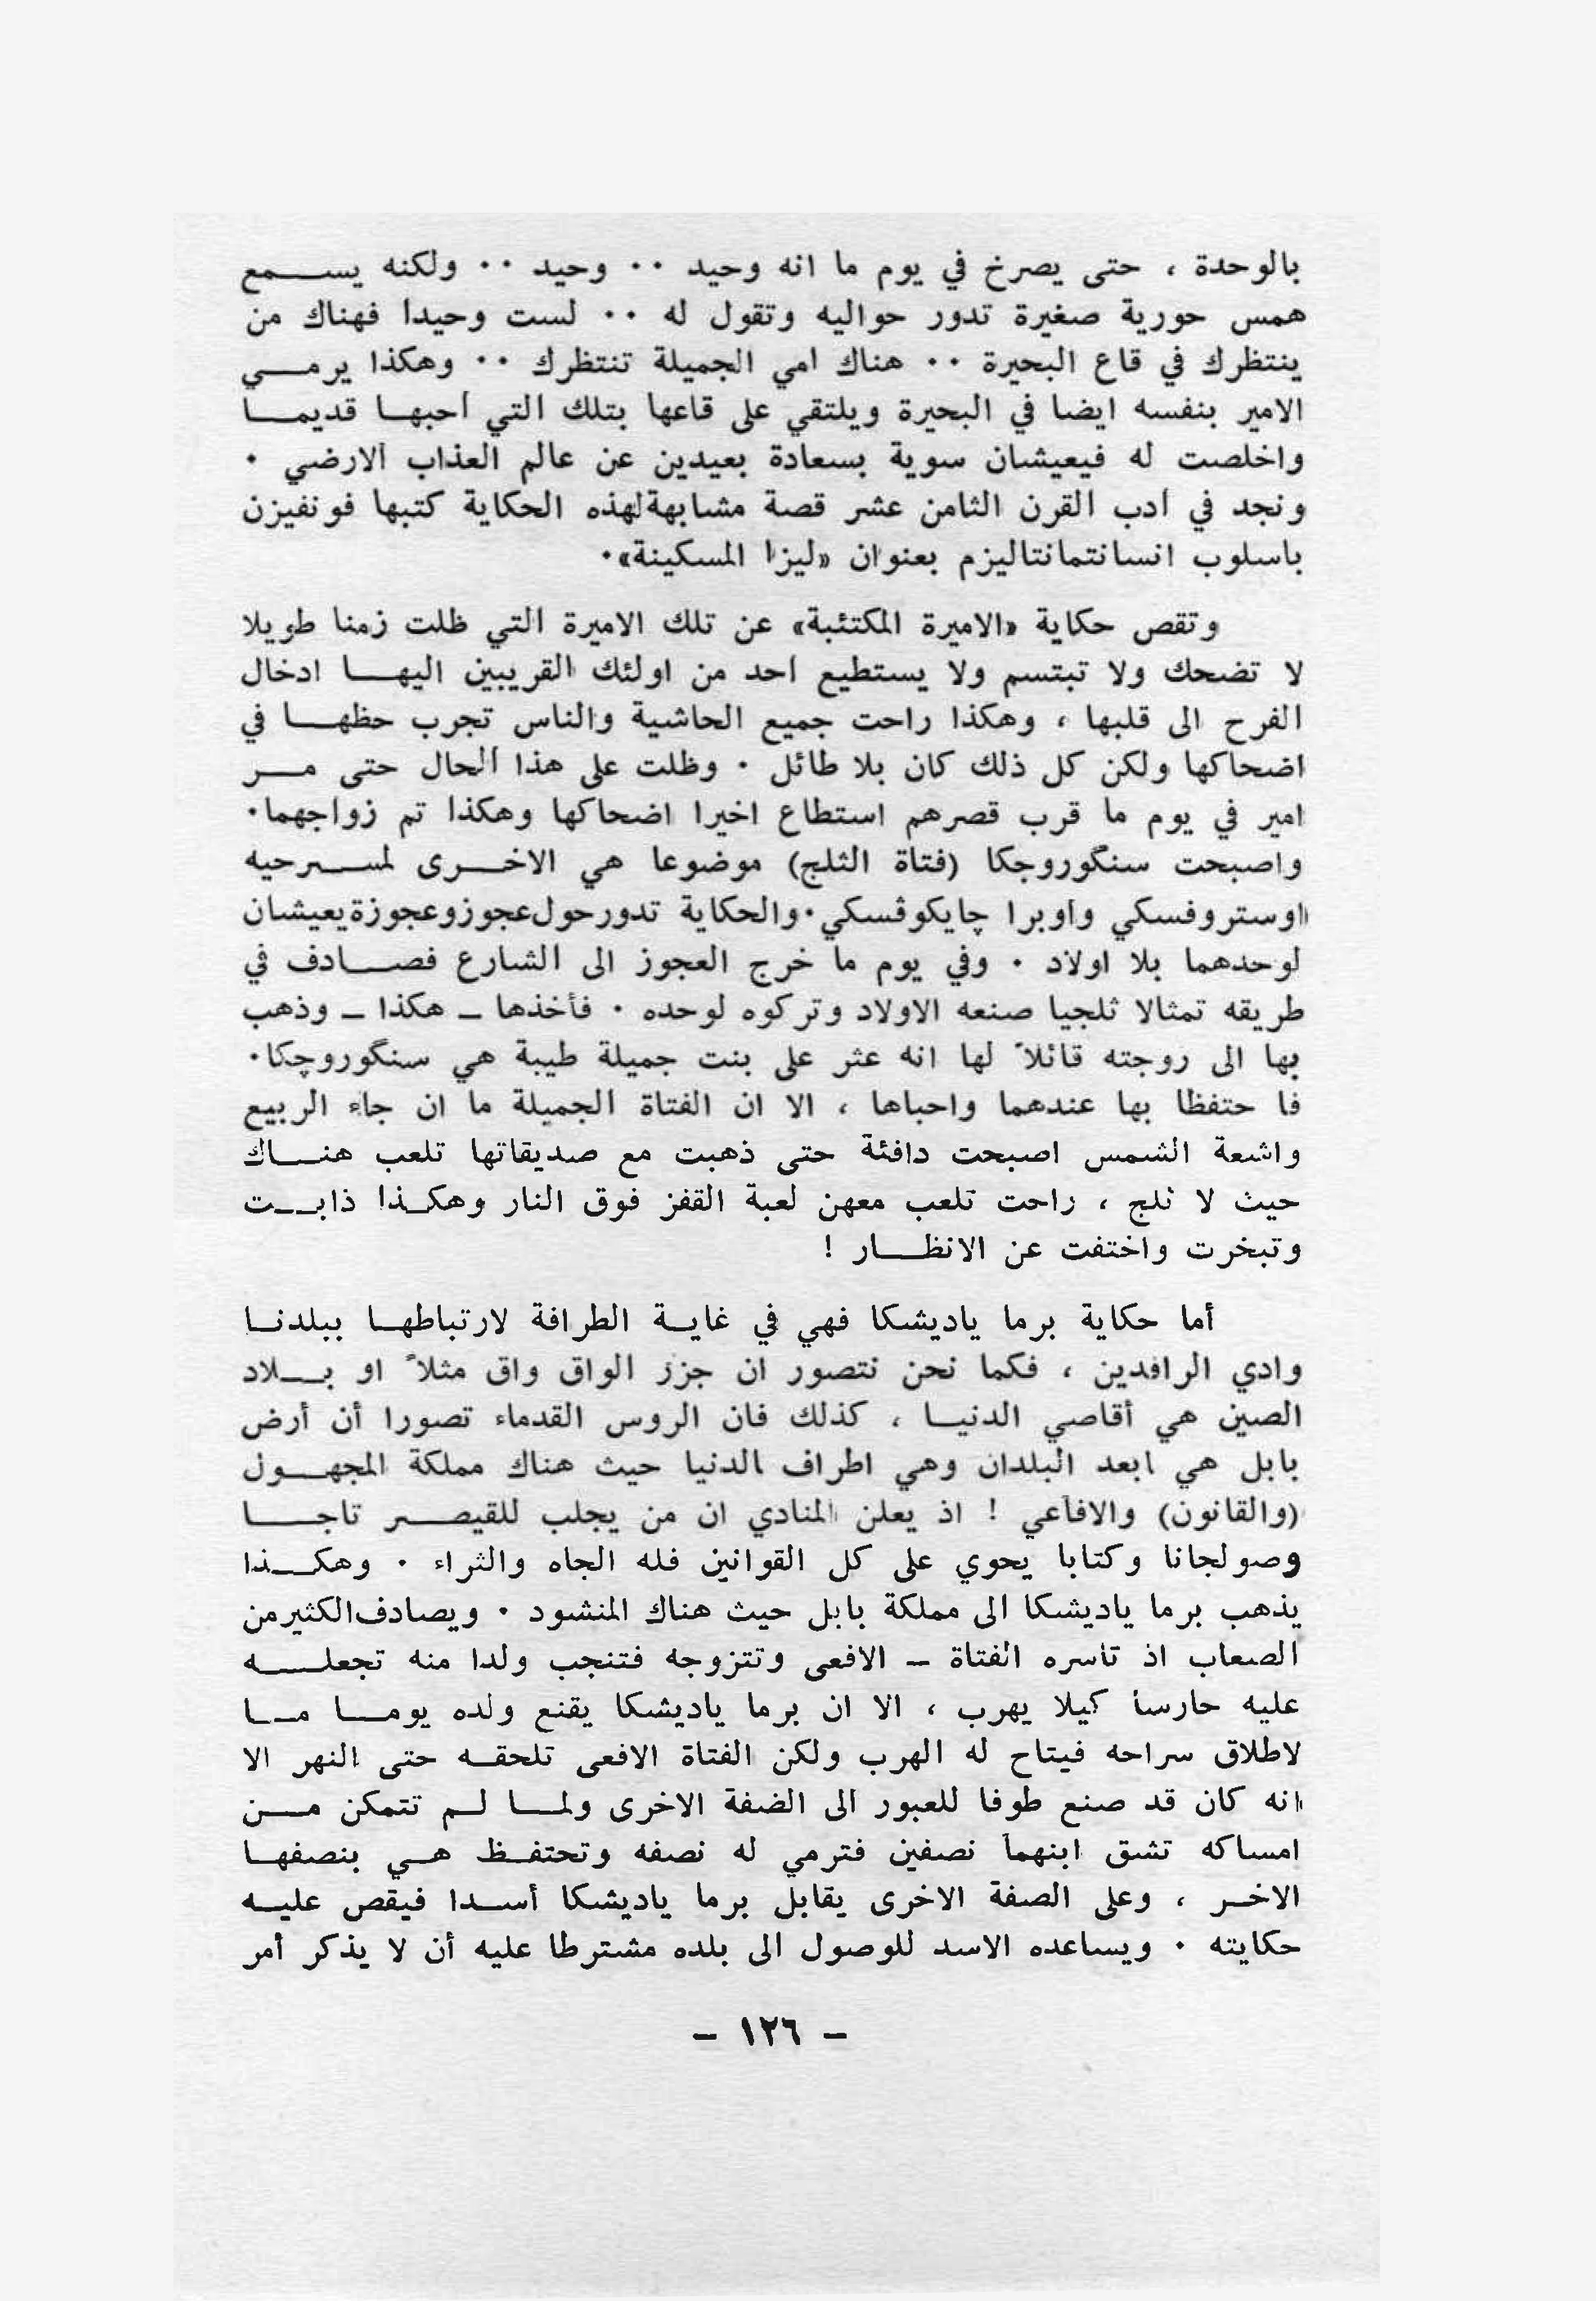 بالوحدة ، حتى يصرخ في يوم ما انه وحيد ٠٠ وحيد ٠٠ ولكنه يسمع
همس حورية صغيرة تدور حواليه وتقول له ٠٠ لست وحيدا فهناك من
ينتظرك في قاع البحيرة ٠٠ هناك امي الجميلة تنتظرك ٠٠ وهكذا يرمي
الامير بنفسه ايضا في البحيرة ويلتقي على قاعها بتلك التي أحبها قديما
واخلصت له فيعيشان سوية بسعادة بعيدين عن عالم العذاب الارضي ٠
ونجد في أدب القرن الثامن عشر قصة مشابهة لهذه الحكاية كتبها فونفيزن
باسلوب انسانتمانتاليزم بعنوان «ليزا المسكينة»٠
وتقص حكاية «الاميرة المكتئبة» عن تلك الاميرة التي ظلت زمنا طويلا
لا تضحك ولا تبتسم ولا يستطيع احد من اولئك القريبين اليها ادخال
الفرح الى قلبها ، وهكذا راحت جميع الحاشية والناس تجرب حظها في
اضحاكها ولكن كل ذلك كان بلا طائل ٠ وظلت على هذا الحال حتى مر
امير في يوم ما قرب قصرهم استطاع اخيرا اضحاكها وهكذا تم زواجهما٠
واصبحت سنگوروجكا (فتاة الثلج) موضوعا هي الاخرى لمسرحيه
اوستروفسكي وأوبرا چايكوڤسكي٠ والحكاية تدور حول عجوز وعجوزة يعيشان
لوحدهما بلا اولاد ٠ وفي يوم ما خرج العجوز الى الشارع فصادف في
طريقه تمثالا ثلجيا صنعه الاولاد وتركوه لوحده ٠ فأخذها ــ هكذا ــ وذهب
بها الى روجته قائلاً لها انه عثر على بنت جميلة طيبة هي سنگوروچكا٠
فا حتفظا بها عندهما واحباها ، الا ان الفتاة الجميلة ما ان جاء الربيع
واشعة الشمس اصبحت دافئة حتى ذهبت مع صديقاتها تلعب هناك
حيث لا ثلج ، راحت تلعب معهن لعبة القفز فوق النار وهكذا ذابت
وتبخرت واختفت عن الانظار !
أما حكاية برما ياديشكا فهي في غاية الطرافة لارتباطها ببلدنا
وادي الرافدين ، فكما نحن نتصور ان جزر الواق واق مثلاً او بلاد
الصين هي أقاصي الدنيا ، كذلك فان الروس القدماء تصورا أن أرض
بابل هي ابعد البلدان وهي اطراف الدنيا حيث هناك مملكة المجهول
(والقانون) والافاعي ! اذ يعلن المنادي ان من يجلب للقيصر تاجا
وصولجانا وكتابا يحوي على كل القوانين فله الجاه والثراء ٠ وهكذا
يذهب برما ياديشكا الى مملكة بابل حيث هناك المنشود ٠ ويصادف الكثير من
الصعاب اذ تأسره الفتاة ــ الافعى وتتزوجه فتنجب ولدا منه تجعله
عليه حارسأ كيلا يهرب ، الا ان برما ياديشكا يقنع ولده يوما ما
لاطلاق سراحه فيتاح له الهرب ولكن الفتاة الافعى تلحقه حتى النهر الا
انه كان قد صنع طوفا للعبور الى الضفة الاخرى ولما لم تتمكن من
امساكه تشق ابنهما نصفين فترمي له نصفه وتحتفظ هي بنصفها
الاخر ، وعلى الصفة الاخرى يقابل برما ياديشكا أسدا فيقص عليه
حكايته ٠ ويساعده الاسد للوصول الى بلده مشترطا عليه أن لا يذكر أمر
– ١٢٦ –